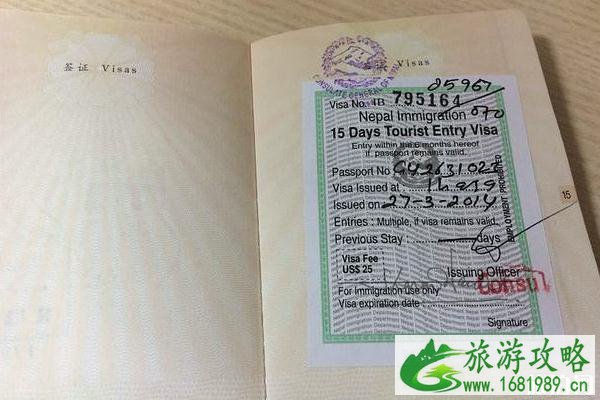 签证 Visas
Visas
CONSULATE GENERAL OF
85967
Visa No. 1B 795164
070
Nepal Immigration
15 Days Tourist Entry Visa
Entry within the 6 months hereof
if passport remains valid.
Passport No
Visa Issued at :
Issued on 27-3-2014
Entries : Multiple, if visa remains valid
Previous Stay : days
EMPLOYMENT PROHIBITED
15
Visa Fee
US$ 25
Issuing Officer
Consul
For Immigration use only
Visa expiration date :
Signature
旅游攻略
www.1681989.cn